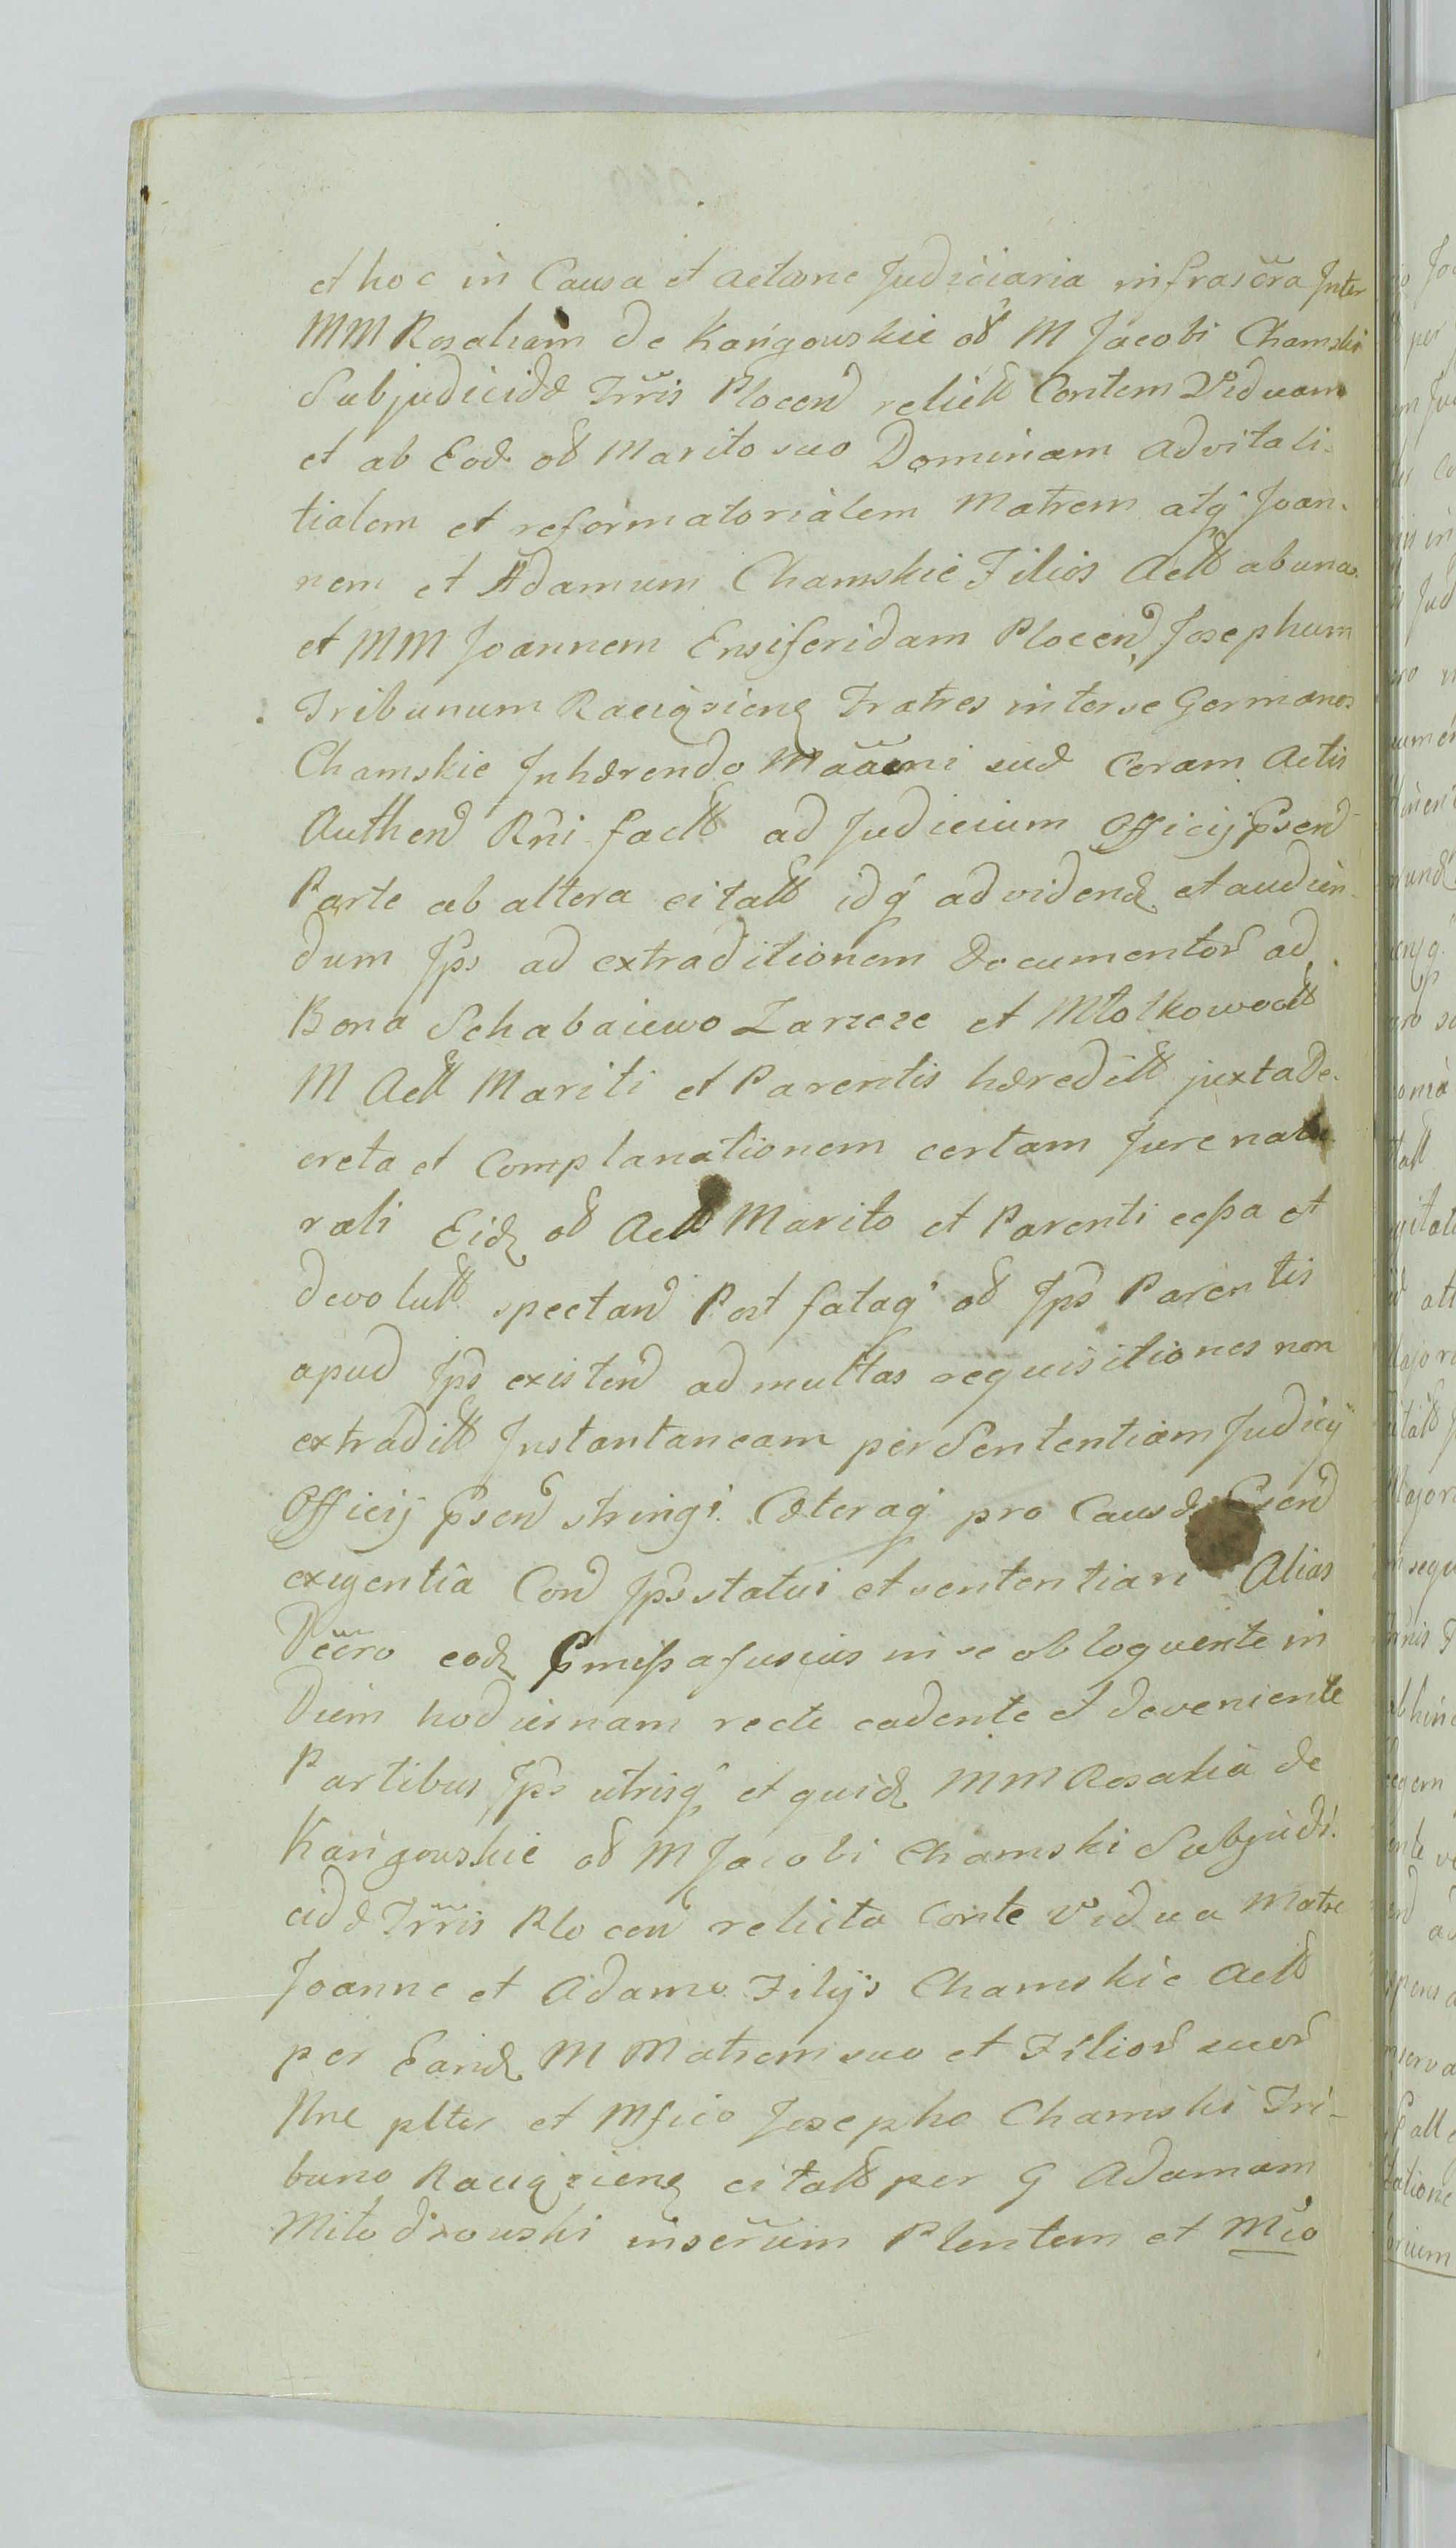 et hoc in Causa et Actione Judiciaria infrascra Inter
MM Rosaliam de Kargowskie od M Jacobi Chamski
Subjudicidæ Trris Plocen relictt Contem Viduam
et ab Eod od Marito suo Dominam advitali-
tialem et reformatorialem Matrem atq Joan-
nem et Adamum Chamskie Filios Actt ab una
et MM Joannem Ensiferidam Plocen, Josephum
Tribunum Raciązień Fratres inter se Germanos
Chamskie Inhærendo Maaoni suæ Coram Actis
Authen Rni factt ad Judicium Officij Psen
Parte ab altera citatt idq ad vidend et audien-
dum Ips ad extraditionem Documentor ad
Bona Schabaiewo Zarzece et Młotkowo ett
M Actt Mariti et Parentis hæreditt juxta De-
creta et Complanationem certam Jure natu-
rali Eid od Actt Marito et Parenti cessa et
devolutt spectan Post fataq od Ips Parentis
apud Ips existen ad multas requisitiones non
extraditt Instantaneam per Sententiam Judicij
Officij Psen stringi. Cæteraq pro Causæ Psen
exigentia Con Ips statui et sententiari Alias
Dccro eod Pmissa fusius in se obloquente in
Diem hodiernam recte cadente et deveniente
Partibus Ips utrisq et quid MM Rosalia de
Kargowskie od M Jacobi Chamski Subjudi-
cidæ Trris Plocen relicta Conte Vidua Matre
Joanne et Adamo Filijs Chamskie Actt
per Eand M Matrem suo et Filior suor
Nne plter et Mfico Josepho Chamski Tri-
buno Raciązień citatt per G Adamum
Miłodrowski inserum Plentem et Mco